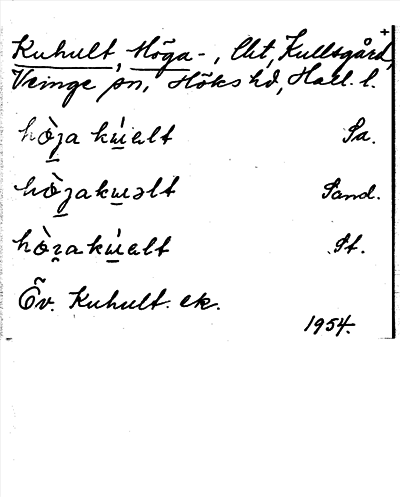 +
Kuhult, Höga-, lht, Kullsgård,
Veinge sn, Höks hd, Hall. l.
hò̱ʒa kú̱alt Sa.
hò̱ʒaku̱əlt Sand.
hò̱ʒakú̱alt St.
Öv. Kuhult. ek.
1954.